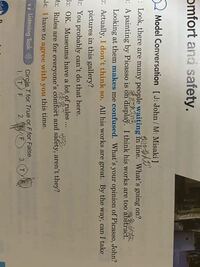 omfort and safety.
Model Conversation [ J: John / M: Misaki ]
Look, there are many people waiting in line. What's going on?
A painting by Picasso is on display. I think his works are too abstract.
Looking at them makes me confused. What's your opinion of Picasso, John?
Actually, I don't think so. All his works are great. By the way, can I take
pictures in this gallery?
M: You probably can't do that here.
J: OK. Museums have a lot of rules ...
M: Rules are for everyone's comfort and safety, aren't they?
J: I have to agree with you this time.
Listening
T or F for True or False.
1. T F 2. T F 3. T F